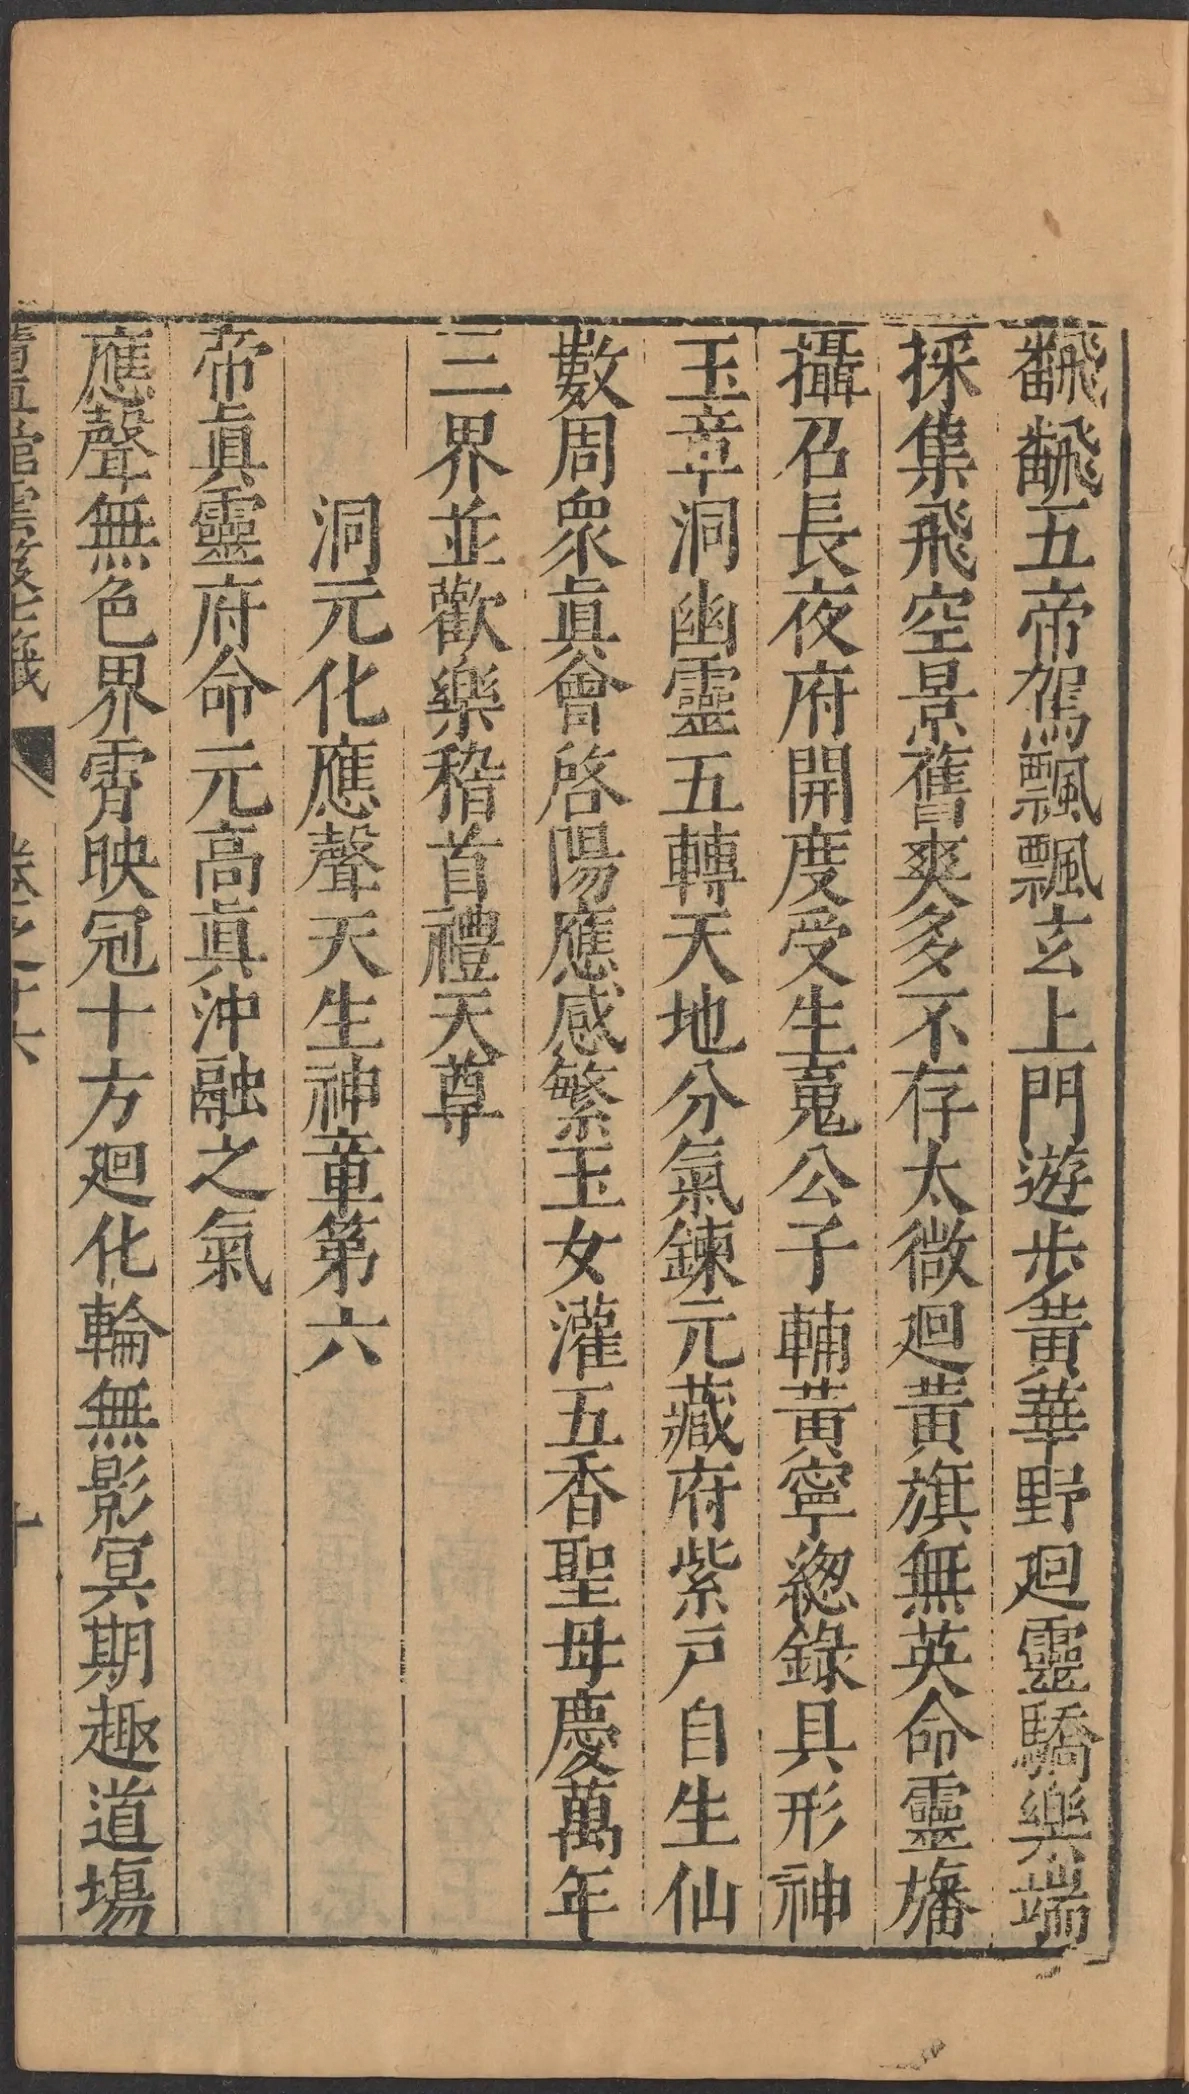 翻飜五帝駕飄飄玄上門遊步黃華野廻靈驕樂端
採集飛空景舊爽多不存太微廻黃旗無英命靈旛
攝召長夜府開度受生䰟公子輔黃寧緫錄具形神
玉章洞幽靈五轉天地分氣鍊元藏府紫戶自生仙
數周衆眞會啓陽應感繁玉女灌五香聖母慶萬年
三界並歡樂稽首禮天尊
洞元化應聲天生神章第六
帝眞靈府命元高眞沖融之氣
應聲無色界霄映冠十方廻化輪無影冥期趣道塲
卷之十六
十